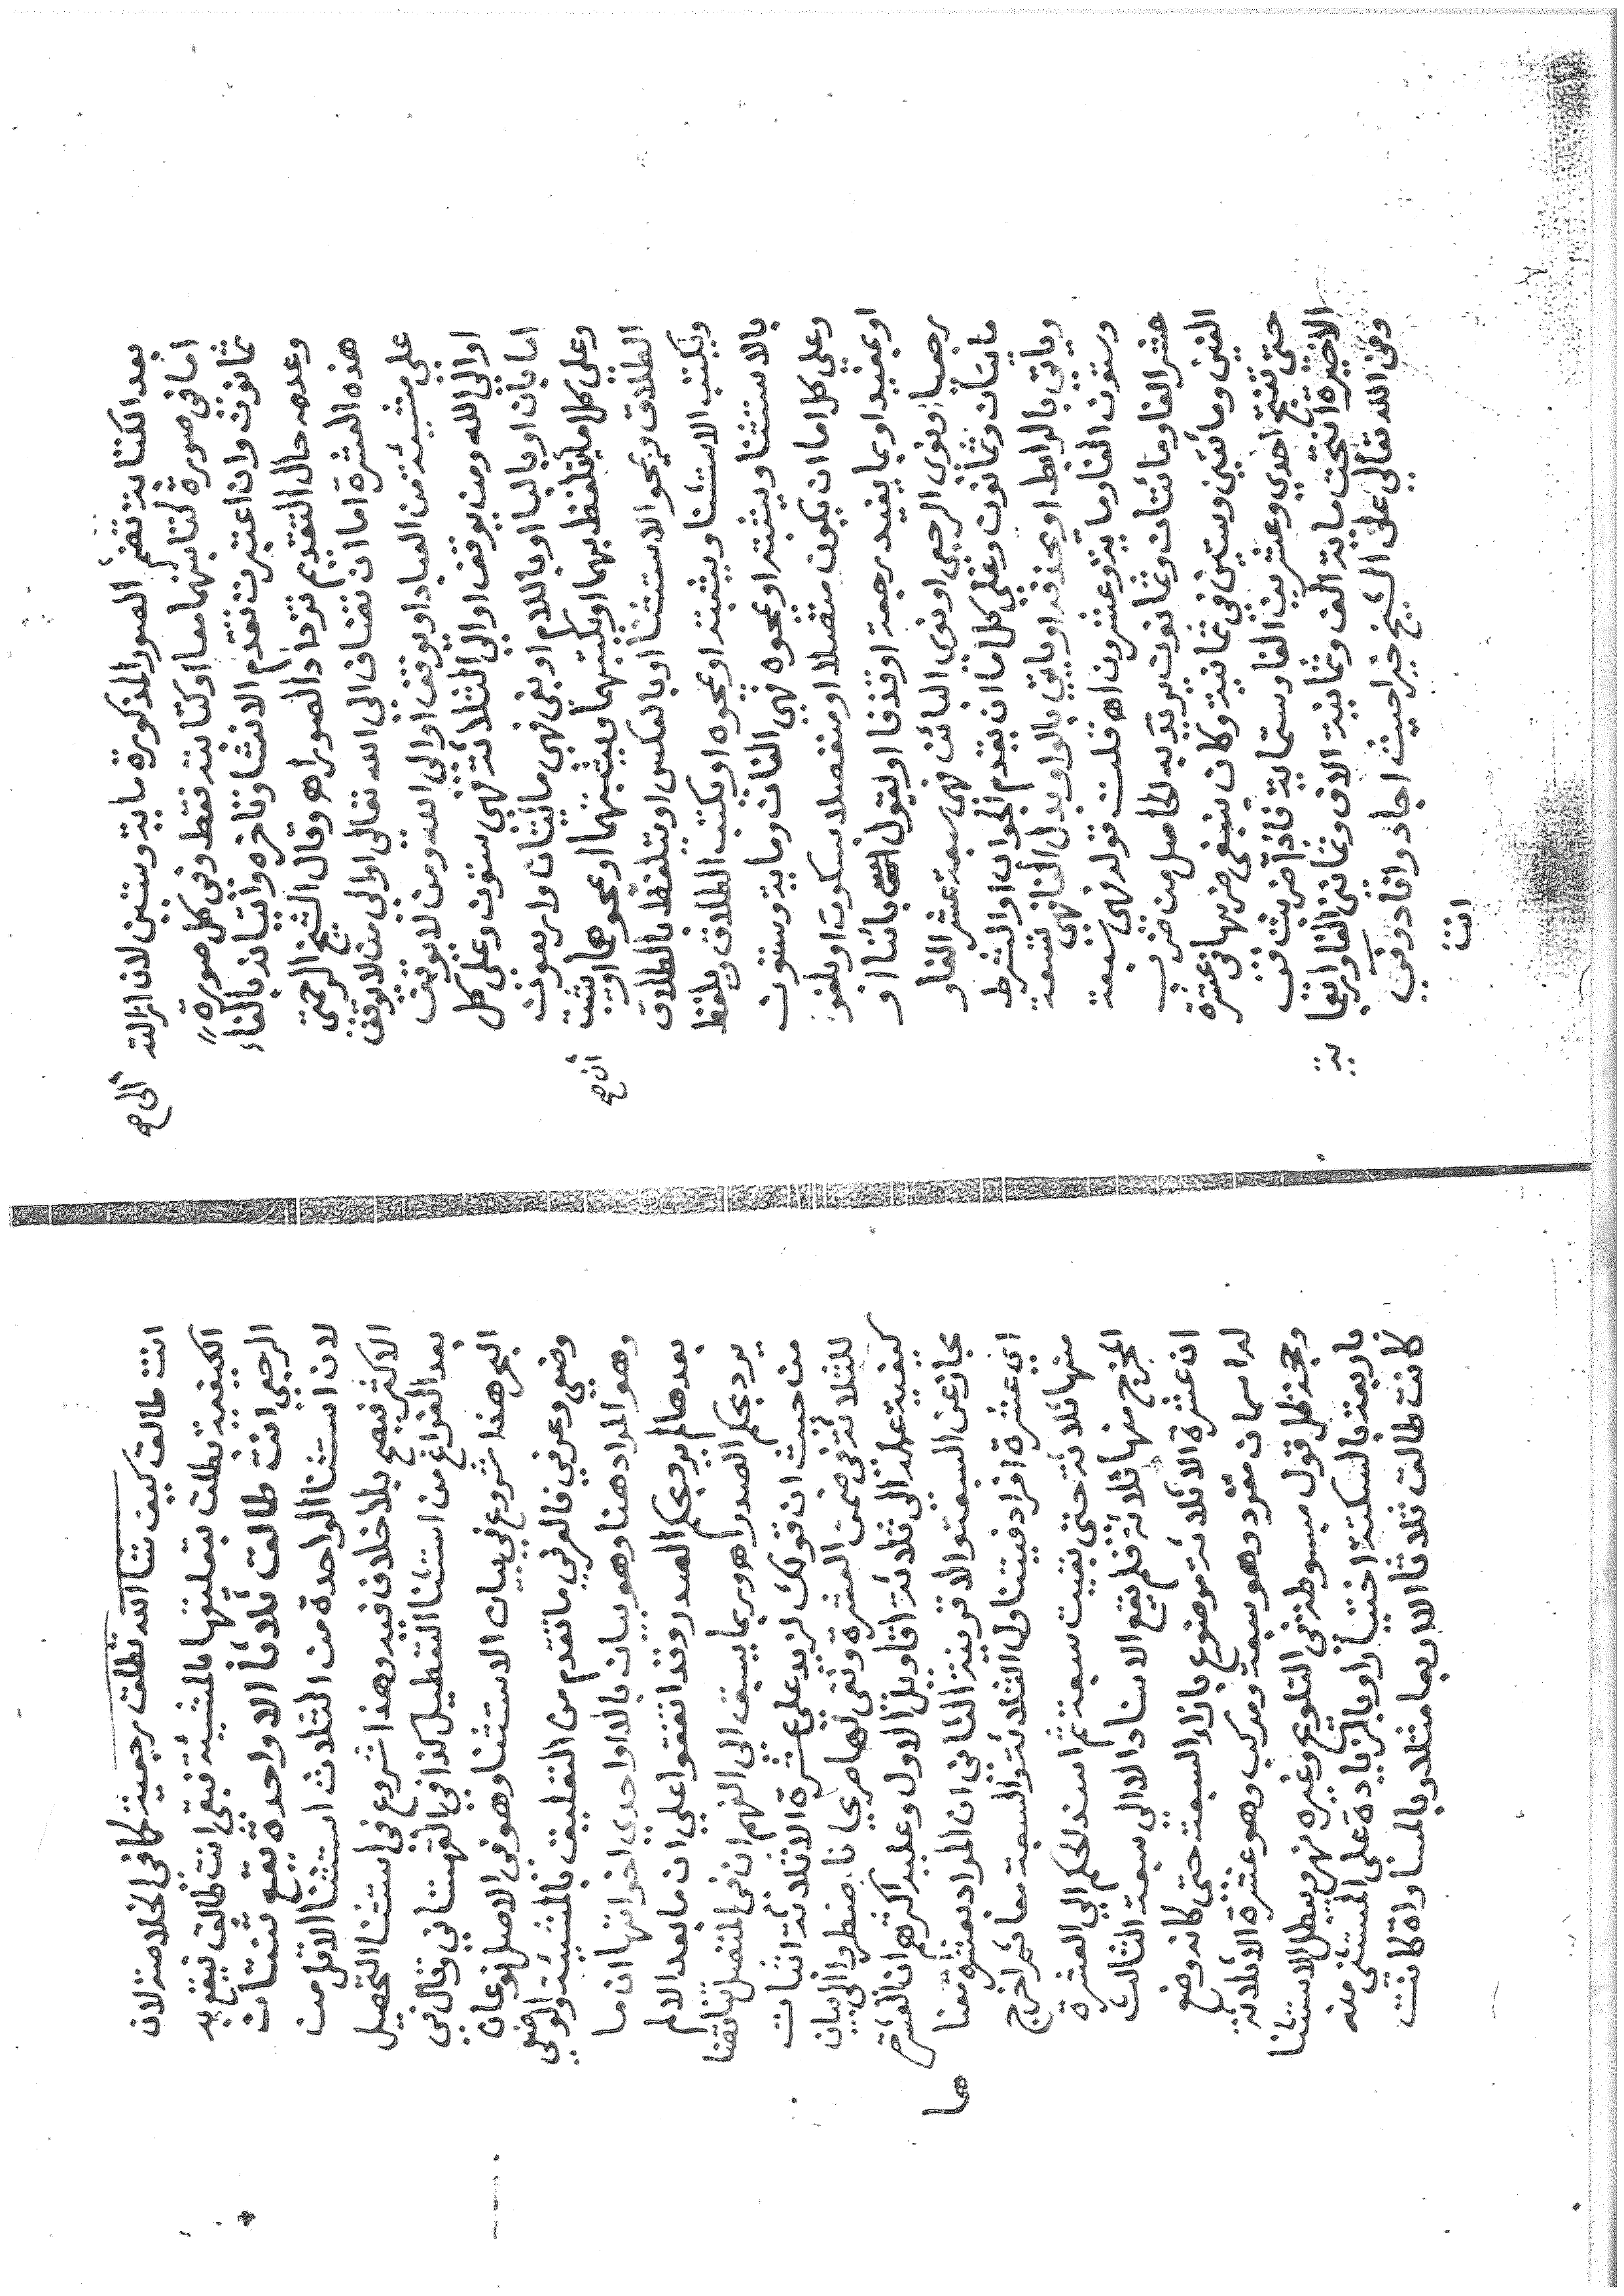 بعد الكتابة تضم الصور المذكورة ماية وستين لان ازالته
اما في صورة كتابتهما معا او كتابته فقط وفي كل صورة
ثمانون وان اعتبرت تقدم الانشا وتاخره واتيانه بالفاء
وعدمه حال التقديم تزداد الصور اهـ وقال الشيخ الرحمتي
هذه العشرة اما ان تضاف الى الله تعالى او الى من لا يوقف
على مشيئته من العباد او يوقف او الى الله ومن لا يوقف
او الى الله ومن يوقف او الى الثلاثة فهي ستون وعلى كل
اما بان او بالبا او باللام او بفي فهي مائتان واربعون
وعلى كل اما يتلفظ بهما او يكتبهما ويثبتهما او يمحوهما او يثبت
الطلاق ويمحو الاستثنا او بالعكس او يتلفظ بالطلاق
ويكتب الاستثنا ويثبته او يمحوه او يكتب الطلاق ويلفظ
بالاستثنا ويثبته او يمحوه فهي الفان وماية وستون
وعلى كل اما ان يكون متصلا او منفصلا بسكوت او بلغو
او بمفيد او بما يفيد رجعة او قذفا او يقول بائنا او
رجعيا ونوى الرجعي او نوى البائن فهي سبعة عشر الفا و
مائتان وثمانون وعلى كل اما ان يقدم الجواب او الشرط
وياتي بالرابط او يحذفه او ياتي بالواو بدل الفا فهي تسعة
وستون الفا وماية وعشرون اهـ قلت قوله فهي سبعة
عشر الفا ومائتان وثمانون يريد به الحاصل من ضرب
الفين ومائتين وستين في ثمانية وكان ينبغي ضربها في عشرة
حتى تنتج احدى وعشرين الفا وستماية فاذا ضربت في
الاخيرة انتجت ماية الف وثمانية الاف وثماني الفا اربعا
رضي الله تعالى عن الشيخ خيرا حيث اجاد وافاد وفي
انت
انت طالق كيف شا الله تطلق رجعية كما في الخلاصة لان
الكيفية تطلق بتعليقها بالمشيئة فبقي انت طالق فيقع به
الرجعي انت طالق ثلاثا الا واحدة تقع ثنتان
لان استثنا الواحدة من الثلاث استثنا الاقل من
الاكثر فيصح بلا خلاف فيه وهذا شروع في استثنا التحصيل
بعد الفراغ من استثنا التعطيل كذا في القهستاني وقال في
البحر هذا شروع في بيان الاستثنا وهو في الاصل نوعان
وضعي وعرفي فالعرفي ما تقدم من التعليق بالمشيئة والوضعي
وهو المراد هنا وهو بيان بالا او احدى اخواتها ان ما
بعدها لم يرد بحكم الصدر وقد اتفقوا على ان ما بعد الا لم
يرد بحكم الصدر اهـ وربما يسبق الى الفهم ان في المتصل تناقضا
من حيث ان قولك لزيد علي عشرة الا ثلاثة اثبات
للثلاثة في ضمن العشرة ونفي لها صريحا فاضطروا الى بيان
كيفية عمله الى ثلاثة اقاويل الاول وعليه اكثرهم ان العشرة
مجاز عن السبعة والا قرينة الثاني ان المراد بعشرة معناها
اي عشرة افراد فيتناول الثلاثة والسبعة معا ثم اخرج
منها ثلاثة حتى بقيت سبعة ثم اسند الحكم الى العشرة
المخرج منها ثلاثة فلم يقع الاسناد الا الى سبعة الثالث
ان عشرة الا ثلاثة موضوع بازاء السبعة حتى كانه وضع
له اسمان مفرد وهو سبعة ومركب وهو عشرة الا ثلاثة
وتحقيق كل قول مبسوطة في التلويح وغيره نهر ويبطل الاستثنا
باربعة بالسكتة اختيارا وبالزيادة على المستثنى منه
كانت طالق ثلاثا الا اربعا مثله وبالمساواة كانت